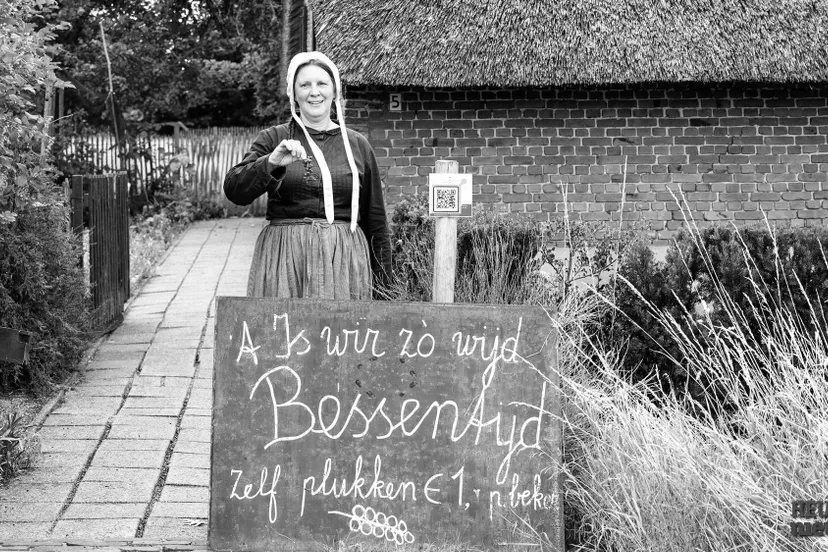 5
'A Is wir zò wijd
Bessentijd
Zelf plukken € 1,- p. beker